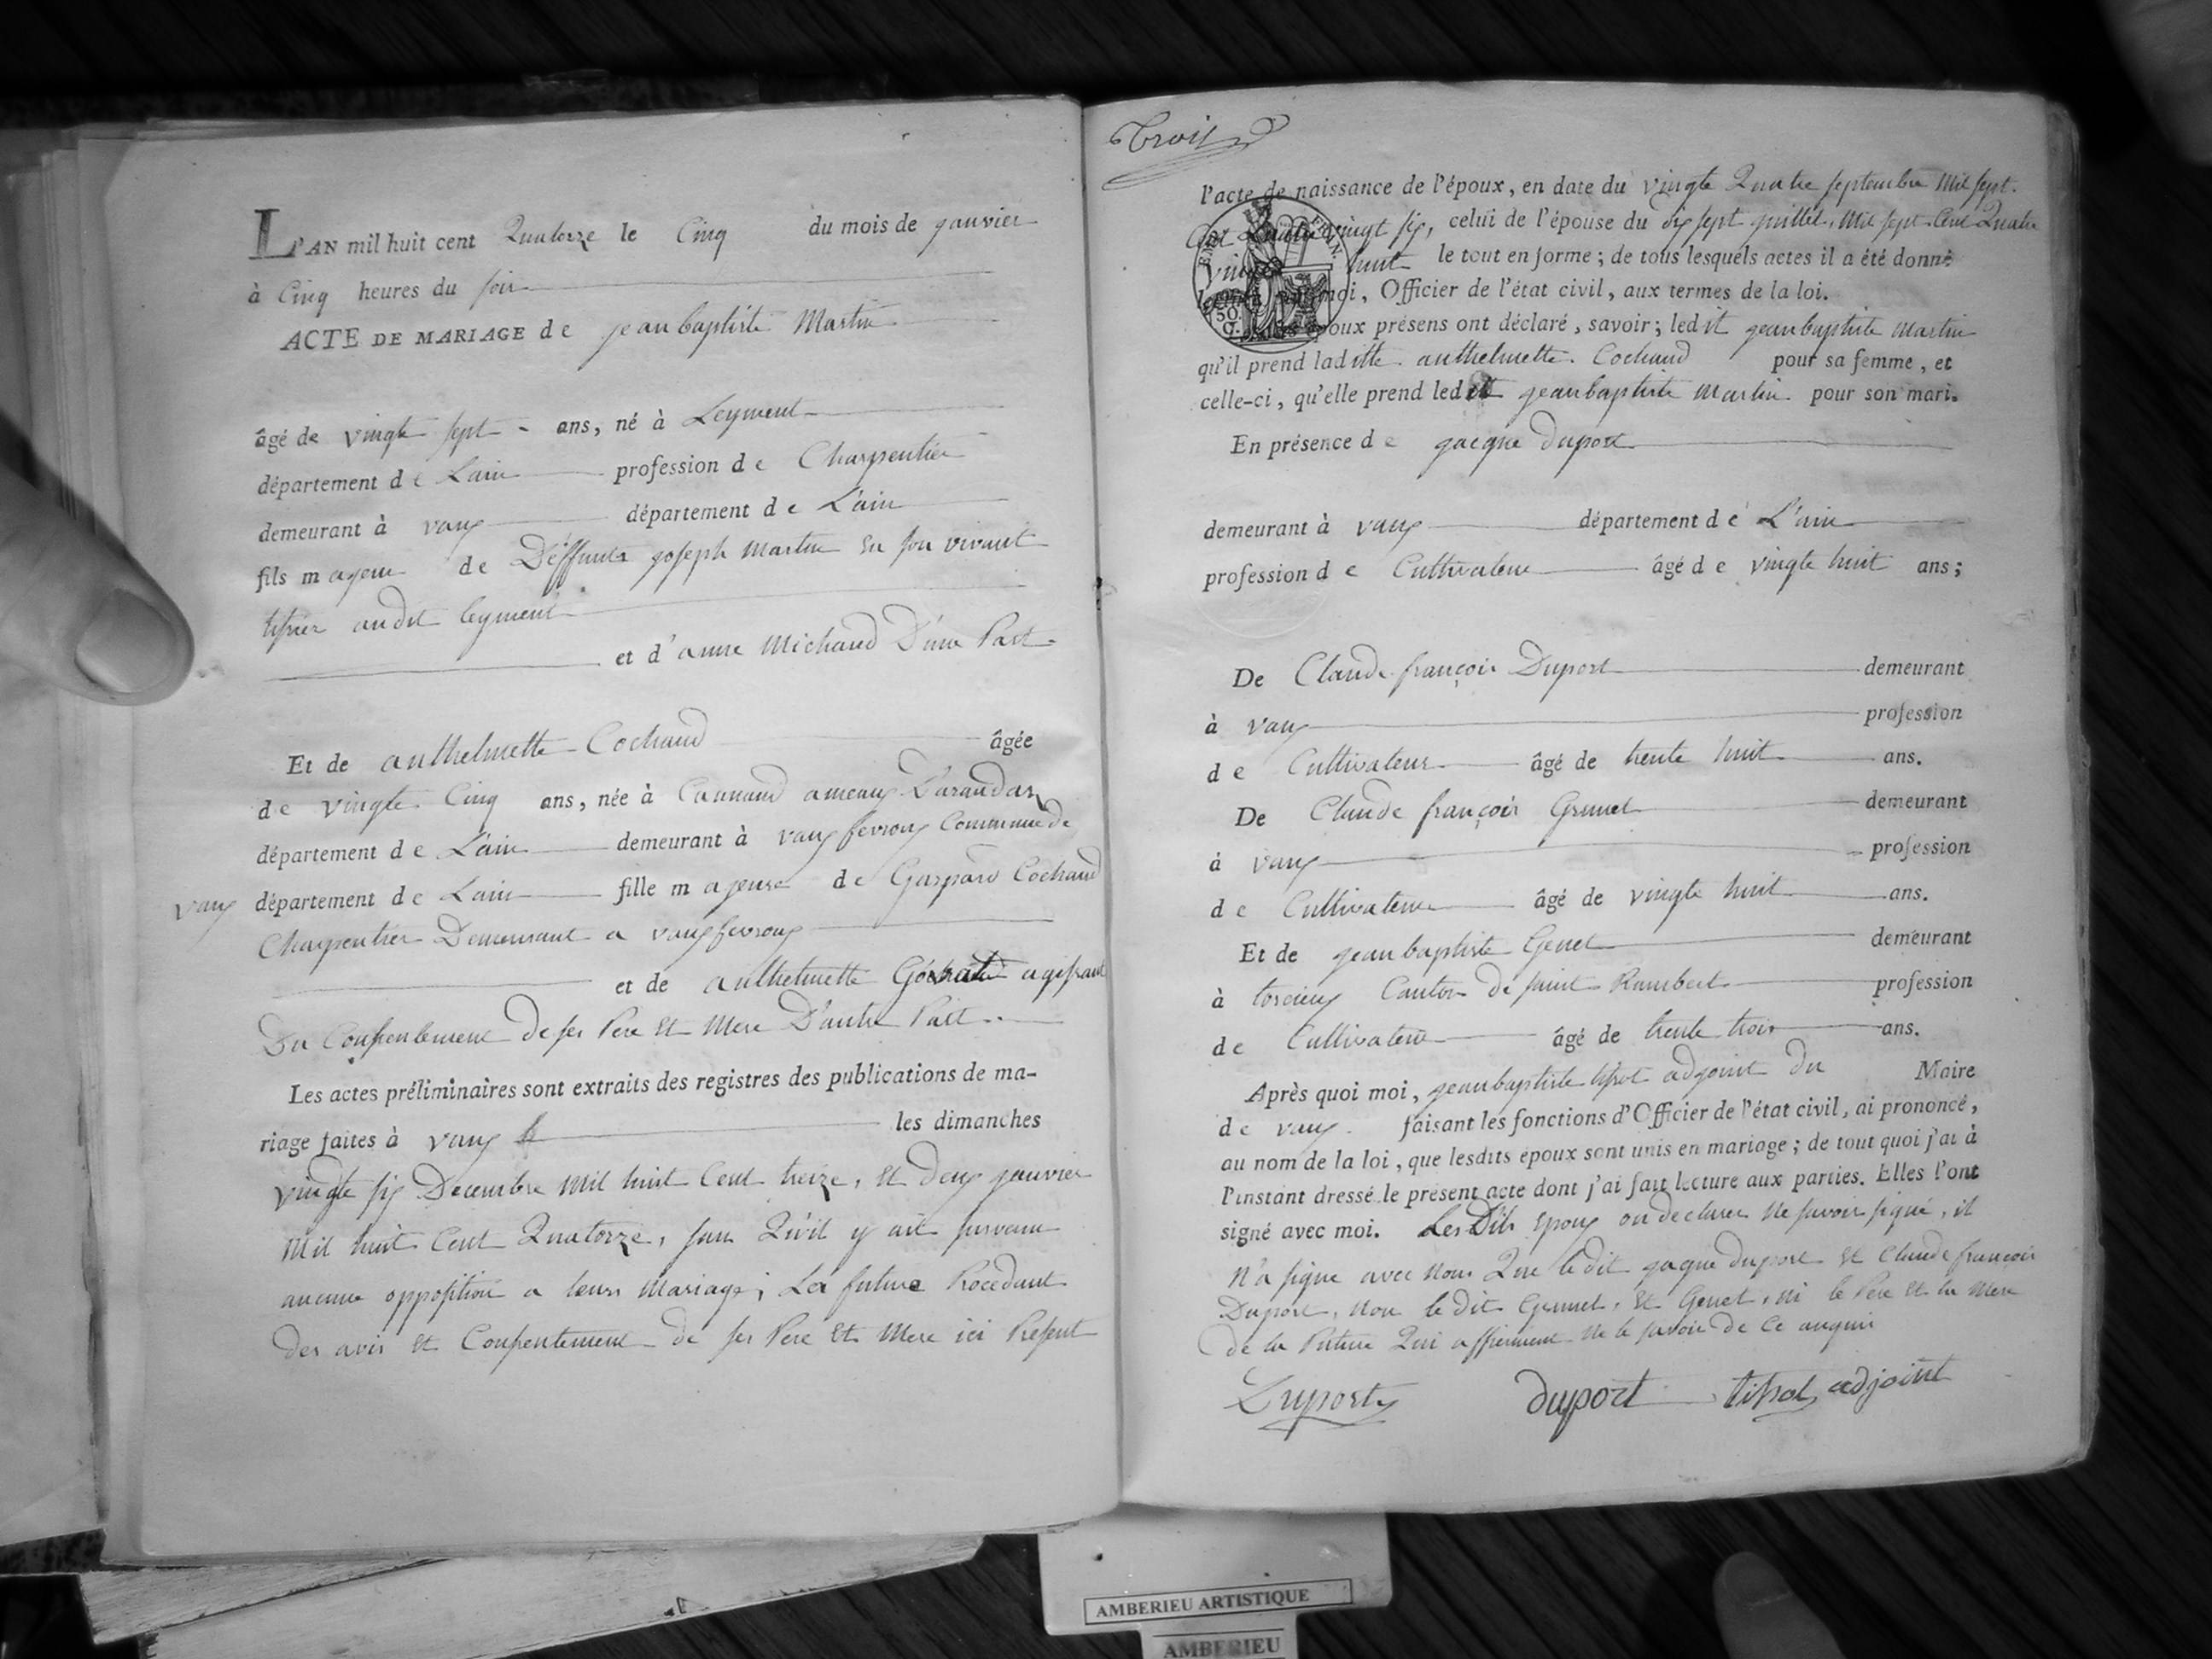 L'AN mil huit cent Quatorze le Cinq du mois de janvier
à Cinq heures du soir
ACTE DE MARIAGE de jean baptiste Martin
âgé de vingte sept ans, né à Leyment
département de Lain profession de Charpentier
demeurant à vaux département de L'ain
fils majeur de Deffunts joseph Martin en son vivant
tissier audit leyment
et d'anne Michaud D'une Part
Et de anthelmette Cochand âgée
de vingte Cinq ans, née à ameaux D'arandas
département de L'ain demeurant à vaux fevroux Commune de
vaux département de Lain fille majeure de Gaspard Cochand
Charpentier Demeurant a vaux fevroux
et de anthelmette agissant
Du Consentement de ses Pere Et Mere D'autre Part
Les actes préliminaires sont extraits des registres des publications de ma-
riage faites à vaux les dimanches
vingte six Decembre Mil huit Cent treize, Et deux janvier
Mil huit Cent Quatorze, san Qu'il y ait survenu
aucune opposition a leurs Mariage; La future Procedant
des avis Et Consentement de ses Pere Et Mere ici Présent
Trois
l'acte de naissance de l'époux, en date du vingte Quatre septembre Mil sept
Cent Quatre vingt six, celui de l'épouse du dix sept juillet, Mil sept Cent Quatre
vingt huit le tout en forme; de tous lesquels actes il a été donné
lecture par moi, Officier de l'état civil, aux termes de la loi.
Lesdits époux présens ont déclaré, savoir; ledit jean baptiste Martin
qu'il prend laditte anthelmette Cochand pour sa femme, et
celle-ci, qu'elle prend ledit jean baptiste Martin pour son mari.
En présence de jacque duport
demeurant à vaux département de L'ain
profession de Cultivateur âgé de vingte huit ans;
De Claude françois Duport demeurant
à vaux profession
de Cultivateur âgé de trente huit ans.
De Claude françois Grumet demeurant
à vaux profession
de Cultivateur âgé de vingte huit ans.
Et de jean baptiste Genet demeurant
à torcieux Canton de saint Rambert profession
de Cultivateur âgé de trente trois ans.
Après quoi moi, jean baptiste tissot adjoint du Maire
de vaux faisant les fonctions d'Officier de l'état civil, ai prononcé,
au nom de la loi, que lesdits époux sont unis en mariage; de tout quoi j'ai à
l'instant dressé le présent acte dont j'ai fait lecture aux parties. Elles l'ont
signé avec moi. Les Dits Epoux on declarer Ne savoir signé, il
N'a signe avec Nous Que ledit jacque duport Et Claude françois
Duport, Non le dit Grumet, Et Genet, ni le Pere Et la Mere
de la Future Qui affirment Ne le savoir de Ce enquis
Duport duport tissot adjoint
AMBERIEU ARTISTIQUE
AMBERIEU